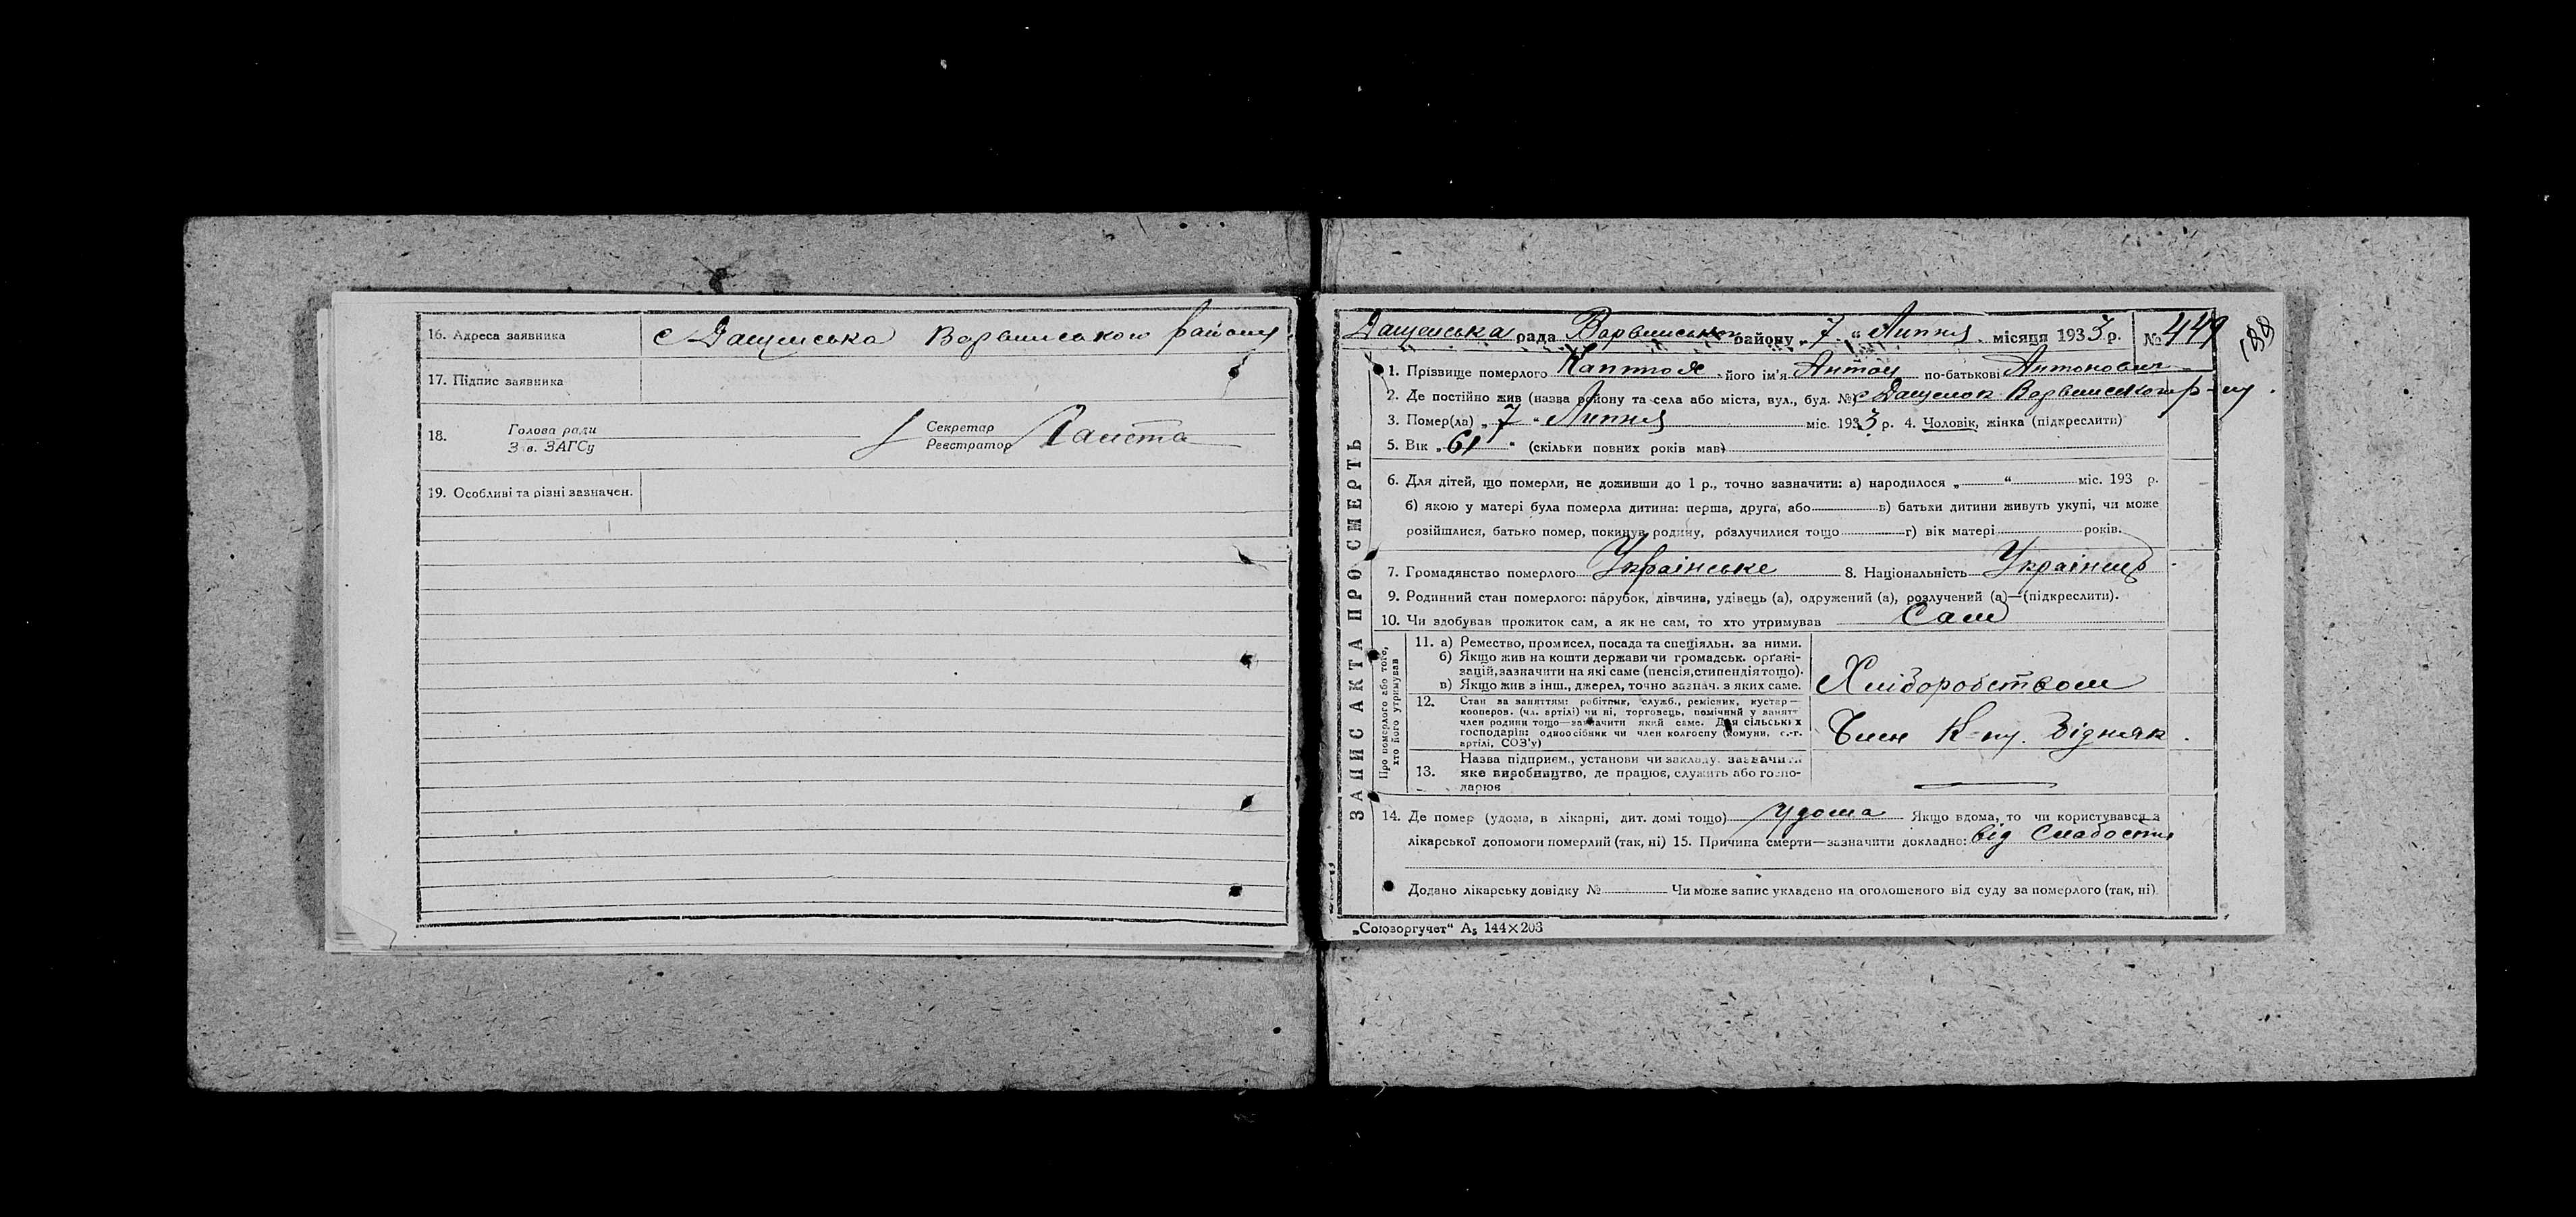 16. Адреса заявника с Дащенська Варвинського району
17. Підпис заявника
18. Голова ради
З в. ЗАГСу
Секретар
Реєстратор
19. Особливі та різні зазначен.
ЗАПИС АКТА ПРО СМЕРТЬ
Дащенська рада Варвинського району „ 7 “ Липня місяця 1933 р. № 449
188
1. Прізвище померлого його ім'я Антон по-батькові Антонович
2. Де постійно жив (назва району та села або міста, вул., буд. №) с Дащенок Варвинського р-ну.
3. Помер(ла) „ 7 “ Липня міс. 1933 р. 4. Чоловік, жінка (підкреслити)
5. Вік „ 61 “ (скільки повних років мав)
6. Для дітей, що померли, не доживши до 1 р., точно зазначити: а) народилося „ “ міс. 193 р.
б) якою у матері була померла дитина: перша, друга, або в) батьки дитини живуть укупі, чи може
розійшлися, батько помер, покинув родину, розлучилися тощо г) вік матері років.
7. Громадянство померлого Українське 8. Національність Українець
9. Родинний стан померлого: парубок, дівчина, удівець (а), одружений (а), розлучений (а)—(підкреслити).
10. Чи здобував прожиток сам, а як не сам, то хто утримував Сам
Про померлого або того,
хто його утримував
11. а) Ремество, промисел, посада та спеціяльн. за ними.
б) Якщо жив на кошти держави чи громадськ. органі-
зацій, зазначити на які саме (пенсія, стипендія тощо).
в) Якщо жив з інш., джерел, точно зазнач. з яких саме.
Хліборобством
12. Стан за заняттям: робітник, служб., ремісник, кустар—
кооперов. (чл. артілі) чи ні, торговець, помічний у занятт
член родини тощо—зазначити який саме. Для сільських
господарів: одноосібник чи член колгоспу (комуни, с.-г.
артілі, СОЗ'у)
Член К-пу. Бідняк.
13. Назва підприєм., установи чи закладу, зазначити
яке виробництво, де працює, служить або госпо-
дарює
14. Де помер (удома, в лікарні, дит. домі тощо) удома Якщо вдома, то чи користувався з
лікарської допомоги померлий (так, ні) 15. Причина смерти—зазначити докладно: від Слабости
Додано лікарську довідку № Чи може запис укладено на оголошеного від суду за померлого (так, ні)
„Союзоргучет“ А₅ 144×203